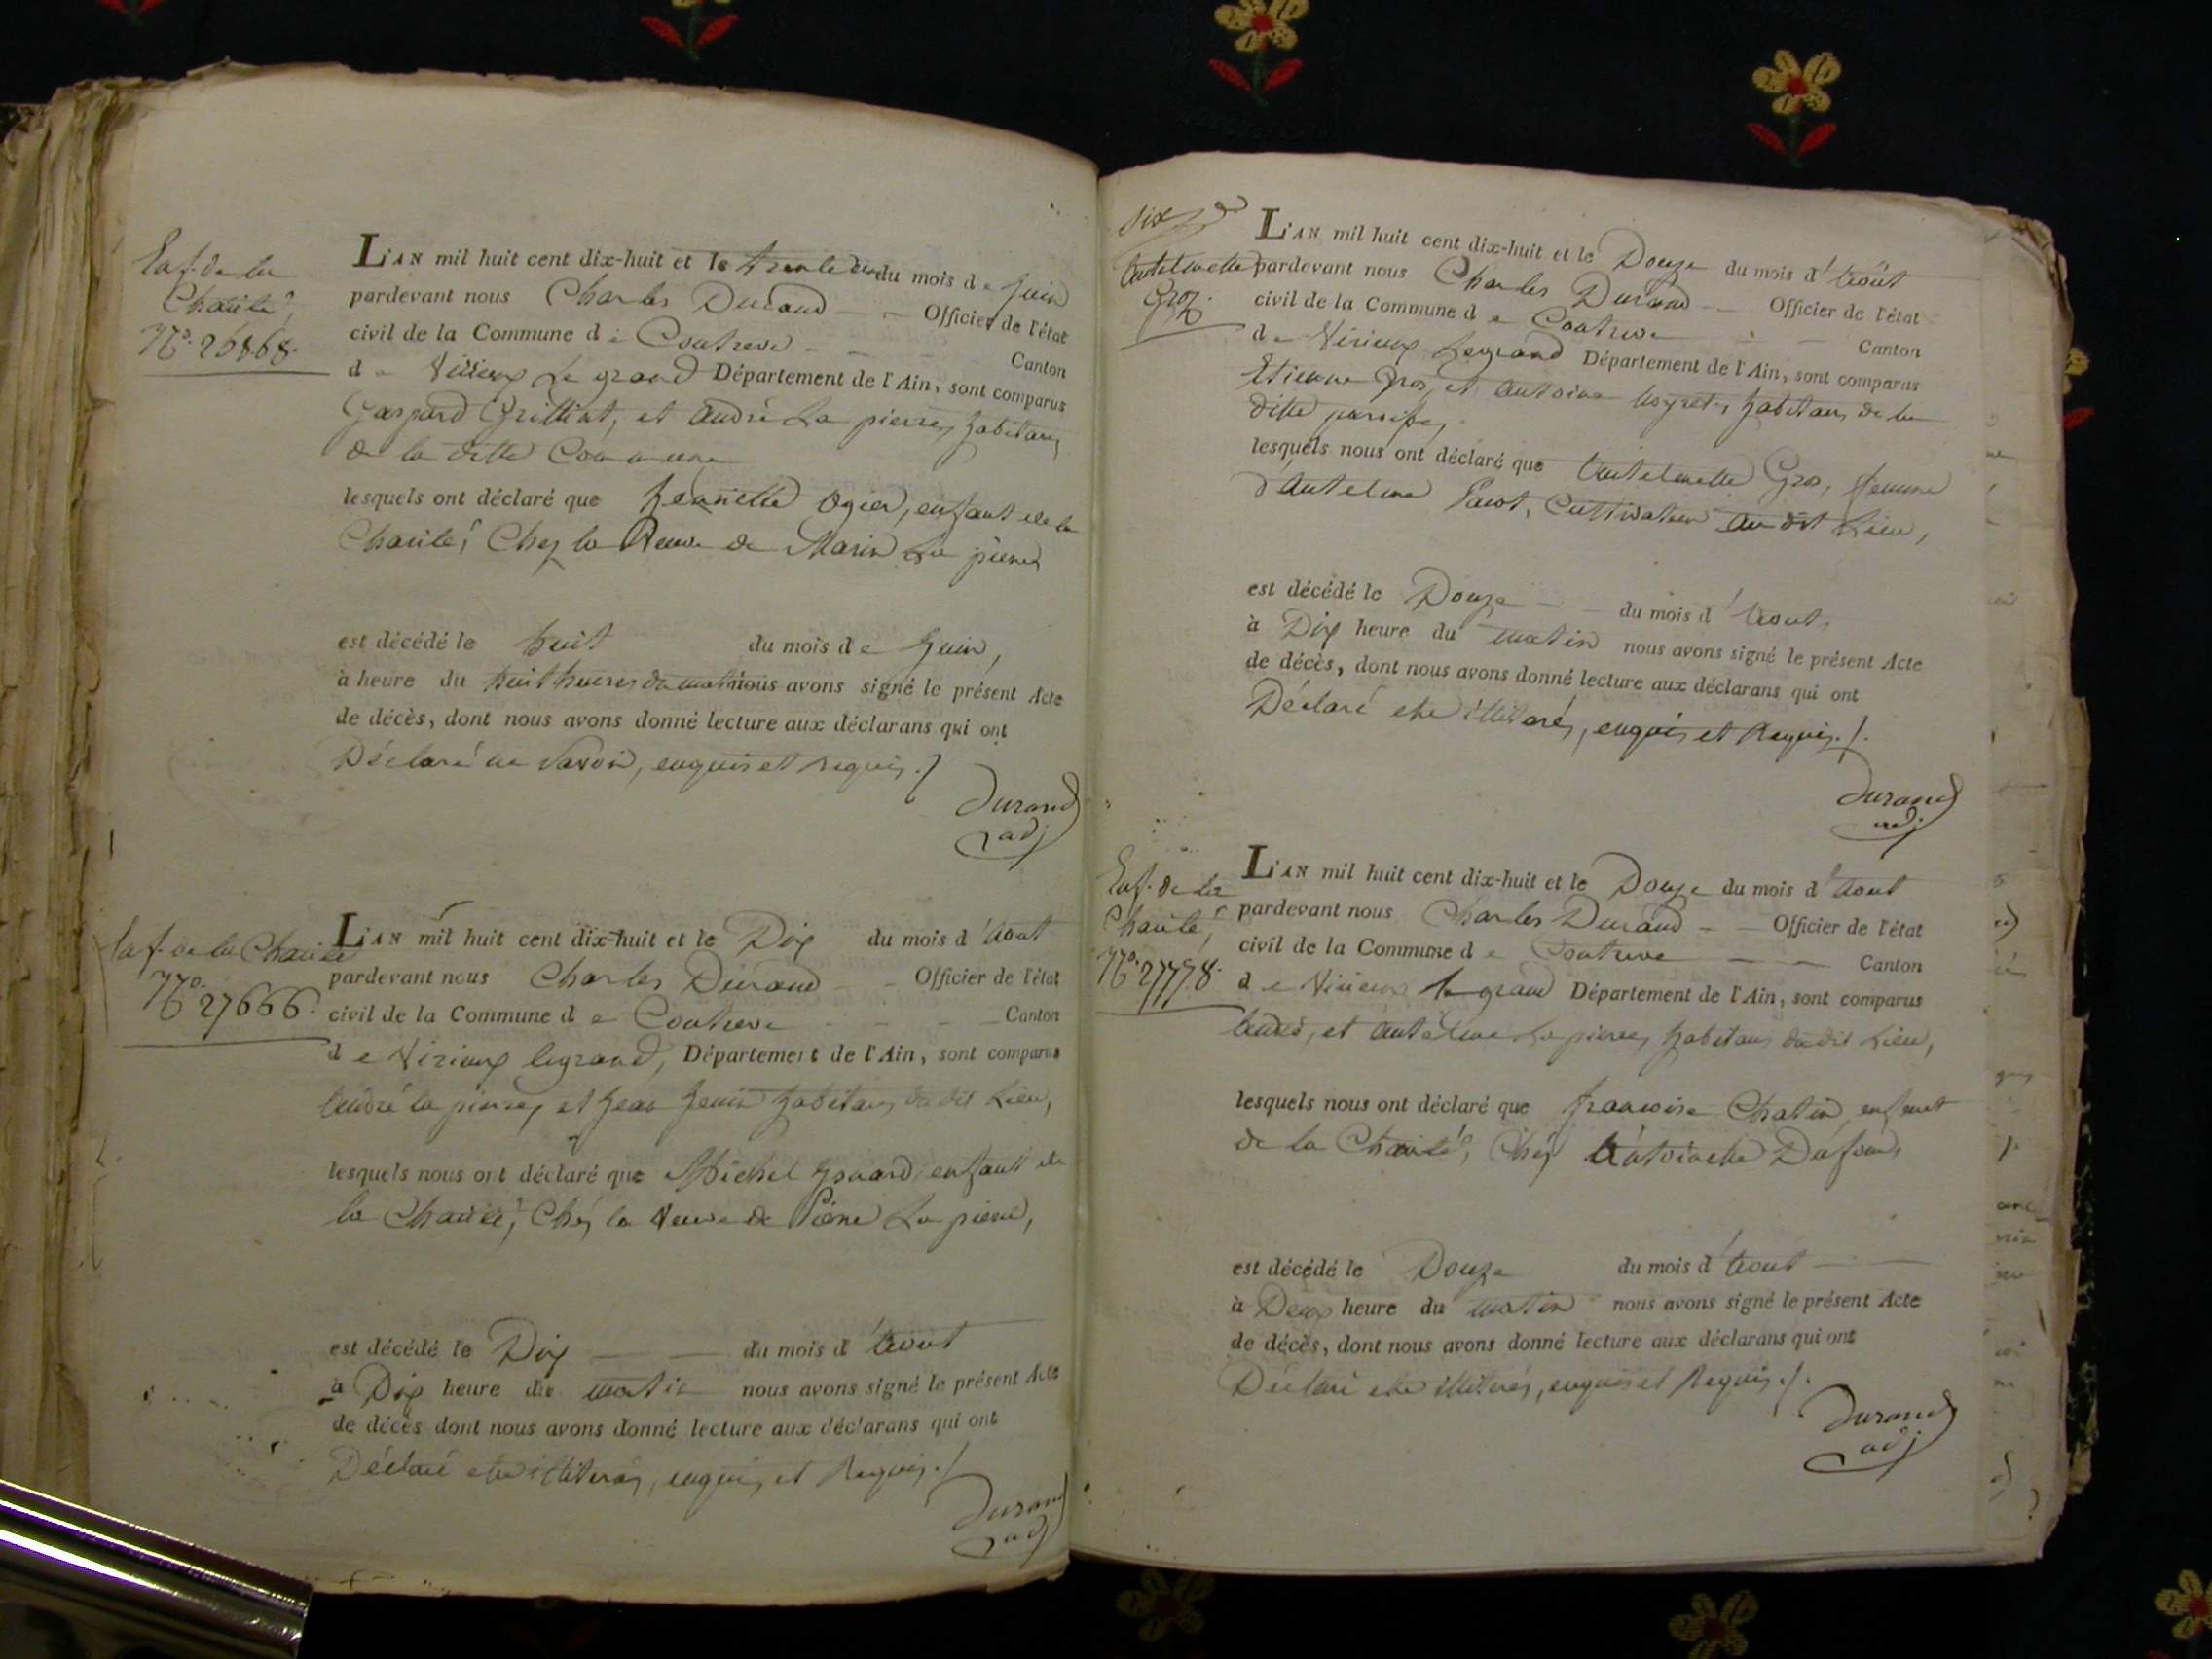 Enf. de la
Charité,
No. 26868.
L'AN mil huit cent dix-huit et le trente du mois de Juin
pardevant nous Charles Durand Officier de l'état
civil de la Commune de Contrevo Canton
de Virieux Le grand Département de l'Ain, sont comparus
Gaspard Grilliat, et André La pierre, habitans
de la ditte Commune
lesquels ont déclaré que Jeannette Ogier, enfant de la
Charité, Chez la Veuve de Marin La pierre
est décédé le huit du mois de Juin,
à heure du huit heures du matin nous avons signé le présent Acte
de décès, dont nous avons donné lecture aux déclarans qui ont
Déclaré ne Savoir, enquis et requis ./.
Durand
adj
Enf. de la Charité
No. 27666.
L'AN mil huit cent dix-huit et le Dix du mois d'Aout
pardevant nous Charles Durand Officier de l'état
civil de la Commune de Contrevo Canton
de Virieux legrand, Département de l'Ain, sont comparus
André la pierre, et Jean Jenin habitans du dit Lieu,
lesquels nous ont déclaré que Michel enfant de
la Charité, Chéz la Veuve de Pierre La pierre,
est décédé le Dix du mois d'Aout
à Dix heure du matin nous avons signé le présent Acte
de décès dont nous avons donné lecture aux déclarans qui ont
Déclaré etre illiterés, enquis et Requis ./.
Durand
adj
Six
Antelmette
Groz.
L'AN mil huit cent dix-huit et le Douze du mois d'Août
pardevant nous Charles Durand Officier de l'état
civil de la Commune de Contrevo Canton
de Virieux Legrand Département de l'Ain, sont comparus
Etienne Gros, et Antoine habitans de la
ditte
lesquels nous ont déclaré que Antelmette Gros, femme
d'Antelme Cultivateur au dit Lieu,
est décédé le Douze du mois d'Aout
à Dix heure du matin nous avons signé le présent Acte
de décès, dont nous avons donné lecture aux déclarans qui ont
Déclaré etre illiterés, enquis et Requis ./.
Durand
adj
Enf. de la
Charité,
No. 27778.
L'AN mil huit cent dix-huit et le Douze du mois d'Aout
pardevant nous Charles Durand Officier de l'état
civil de la Commune de Contrevo Canton
de Virieux le grand Département de l'Ain, sont comparus
André, et Antelme La pierre, habitans du dit Lieu,
lesquels nous ont déclaré que francoise Chatin, enfant
de la Charité, Chéz Antoinette Dufour,
est décédé le Douze du mois d'Aout
à Deux heure du matin nous avons signé le présent Acte
de décès, dont nous avons donné lecture aux déclarans qui ont
Déclaré etre illiterés, enquis et Requis ./.
Durand
adj